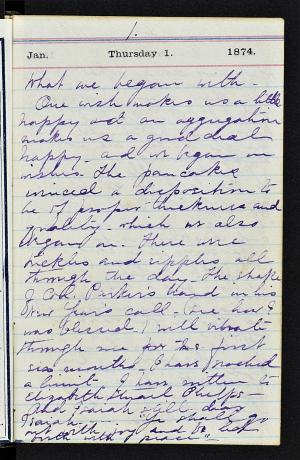 1.
Jan. Thursday 1. 1874.
What we began with -
One wish makes us a little
happy act an aggregation
makes us a good deal
happy - and we began on
wishes. The pancakes
evinced a disposition to
be of proper thickness and
quality - which we also
began on. There are
and ripples all
through the day. The shape
of Col. Parker's hand in his
New Year's call - (the
was blessed) will vibrate
through me for the first
six months. I have reached
a limit - I have written to
Elizabeth Stuart Phelps -
And Sarah
Isaiah - "Ye shall go
out with joy and be led
forth with peace" -